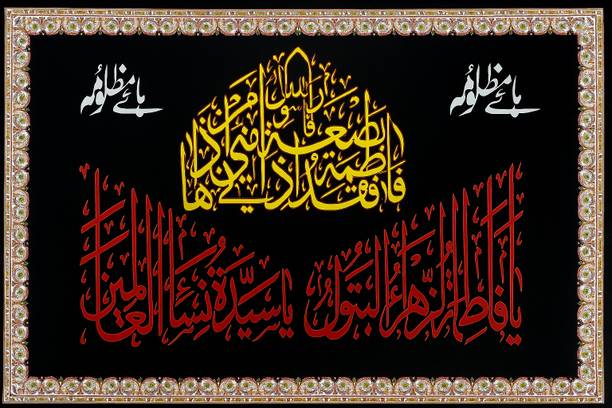 ہائے مظلومہ
ہائے مظلومہ
قال رسول الله
فاطمة بضعة مني من اذاها فقد اذاني
يا فاطمة الزهراء البتول يا سيدة نساء العالمين